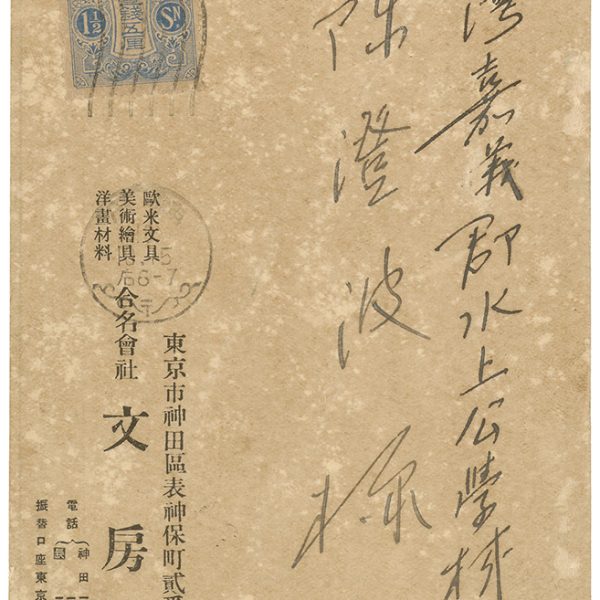 灣嘉義郡水上公學校
陳澄波様
東京市神田區表神保町貳
歐米文具
美術繪具
洋畫材料
合名會社
文房
電話
神田
振替口座東京
錢五厘
1½
SN
6-7